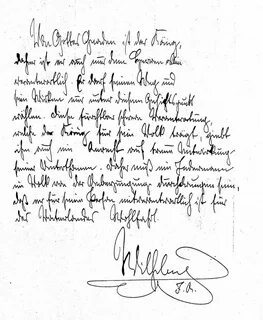 Von Gottes Gnaden ist der König,
daher ist er auch nur dem Herrn allein
verantwortlich. Er darf seinen Weg und
sein Wirken nur unter diesem Gesichtspunkt
wählen. Diese furchtbar schwere Verantwortung,
welche der König für sein Volk trägt, giebt
ihm auch ein Anrecht auf treue Mitwirkung
seiner Unterthanen. Daher muß ein Jedermann
im Volk von der Ueberzeugung durchdrungen sein,
daß er für seine Person mitverantwortlich ist für
des Vaterlandes Wohlfahrt.
Wilhelm
I.R.